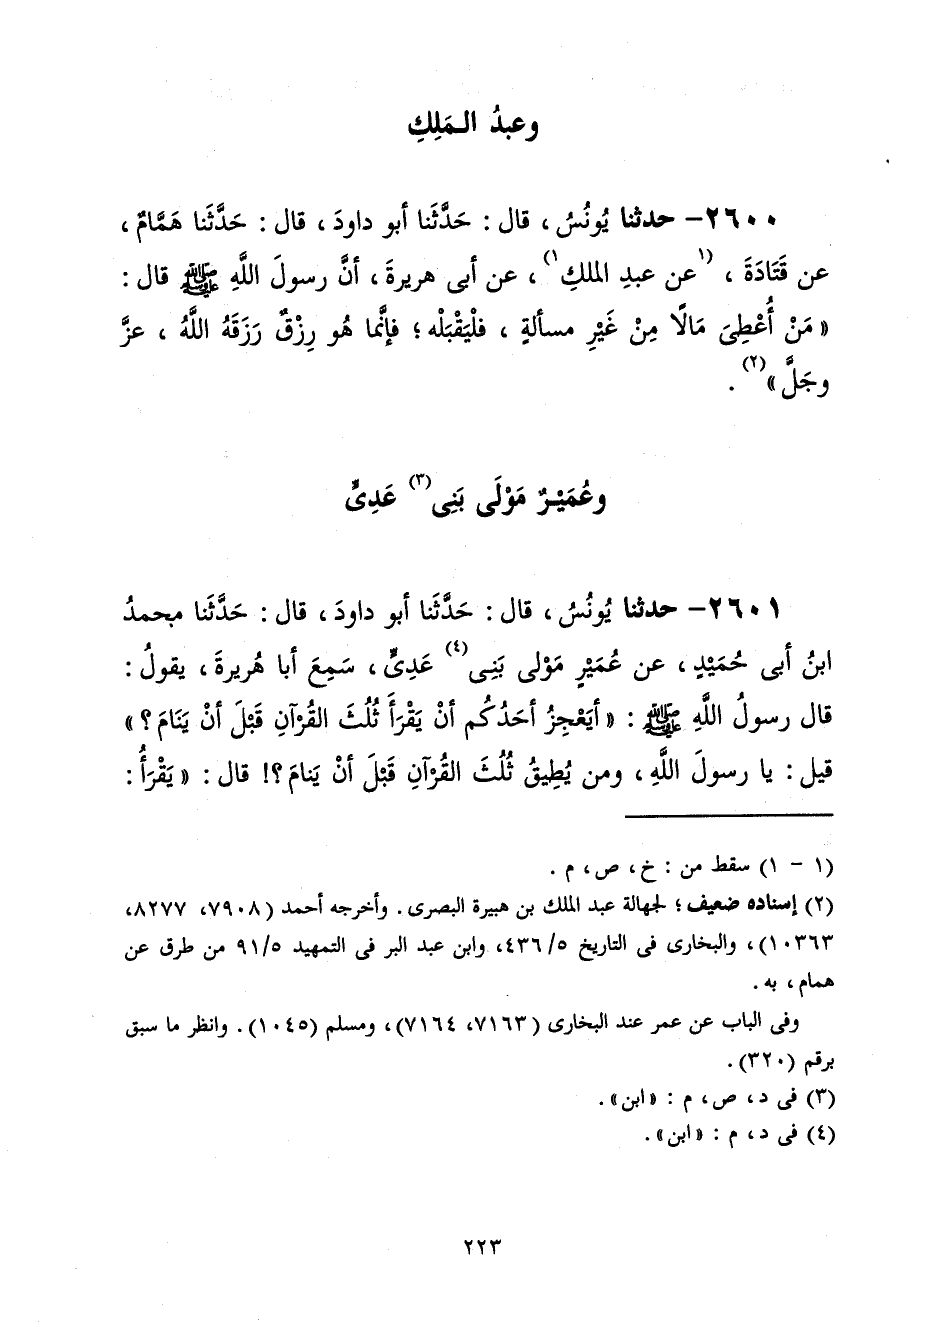 وعبدُ الـمَلِكِ
٢٦٠٠- حدثنا يُونُسُ ، قال : حَدَّثَنا أبو داودَ ، قال : حَدَّثَنا هَمَّامٌ ،
عن قَتَادَةَ ، (١عن عبدِ الملكِ١) ، عن أبى هريرةَ ، أنَّ رسولَ اللَّهِ ﷺ قال :
« مَنْ أُعْطِىَ مَالًا مِنْ غَيْرِ مسألةٍ ، فلْيَقْبَلْه ؛ فإنَّما هُو رِزْقٌ رَزَقَهُ اللَّهُ ، عزَّ
وجَلَّ »(٢) .
وعُمَيْـرٌ مَوْلَى بَنِى(٣) عَدِىٍّ
٢٦٠١- حدثنا يُونُسُ ، قال : حَدَّثَنا أبو داودَ ، قال : حَدَّثَنا محمدُ
ابنُ أبى حُمَيْدٍ ، عن عُمَيْرٍ مَوْلى بَنِى(٤) عَدِىٍّ ، سَمِعَ أبا هُريرةَ ، يقولُ :
قال رسولُ اللَّهِ ﷺ : « أيَعْجِزُ أحَدُكُم أنْ يَقْرَأَ ثُلُثَ القُرْآنِ قَبْلَ أنْ يَنَامَ ؟ »
قيل : يا رسولَ اللَّهِ ، ومن يُطِيقُ ثُلُثَ القُرْآنِ قَبْلَ أنْ يَنامَ ؟! قال : « يَقْرَأُ :
(١ - ١) سقط من : خ ، ص ، م .
(٢) إسناده ضعيف ؛ لجهالة عبد الملك بن هبيرة البصرى . وأخرجه أحمد (٧٩٠٨، ٨٢٧٧،
١٠٣٦٣) ، والبخارى فى التاريخ ٥/ ٤٣٦، وابن عبد البر فى التمهيد ٩١/٥ من طرق عن
همام ، به .
وفى الباب عن عمر عند البخارى (٧١٦٣، ٧١٦٤) ، ومسلم (١٠٤٥) . وانظر ما سبق
برقم (٣٢٠) .
(٣) فى د ، ص ، م : « ابن » .
(٤) فى د ، م : « ابن » .
٢٢٣